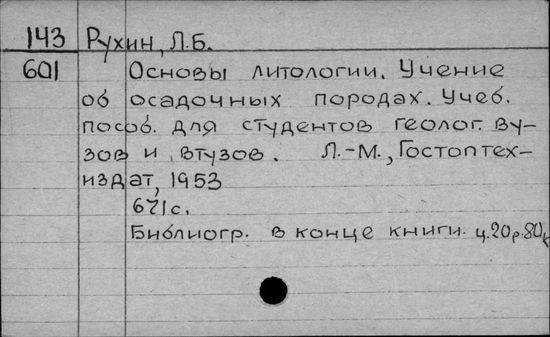 143 Рухин, Л.Б.
601 Основы литологии. Учение
об осадочных породах. Учеб.
пособ. для студентов геолог. ву-
зов и втузов. Л.-М., Гостоптех-
издат, 1953
671с.
Библиогр. в конце книги. ц.20р.80к